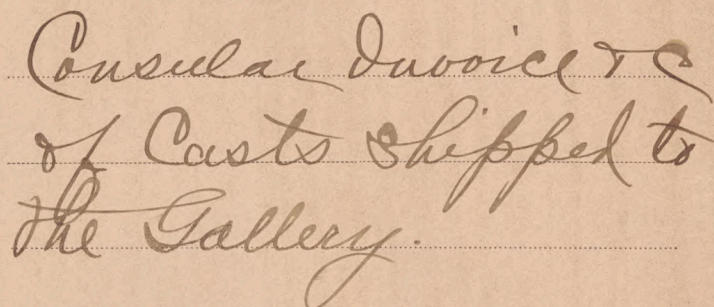 Consular Invoice & C
of Casts shipped to
the Gallery.